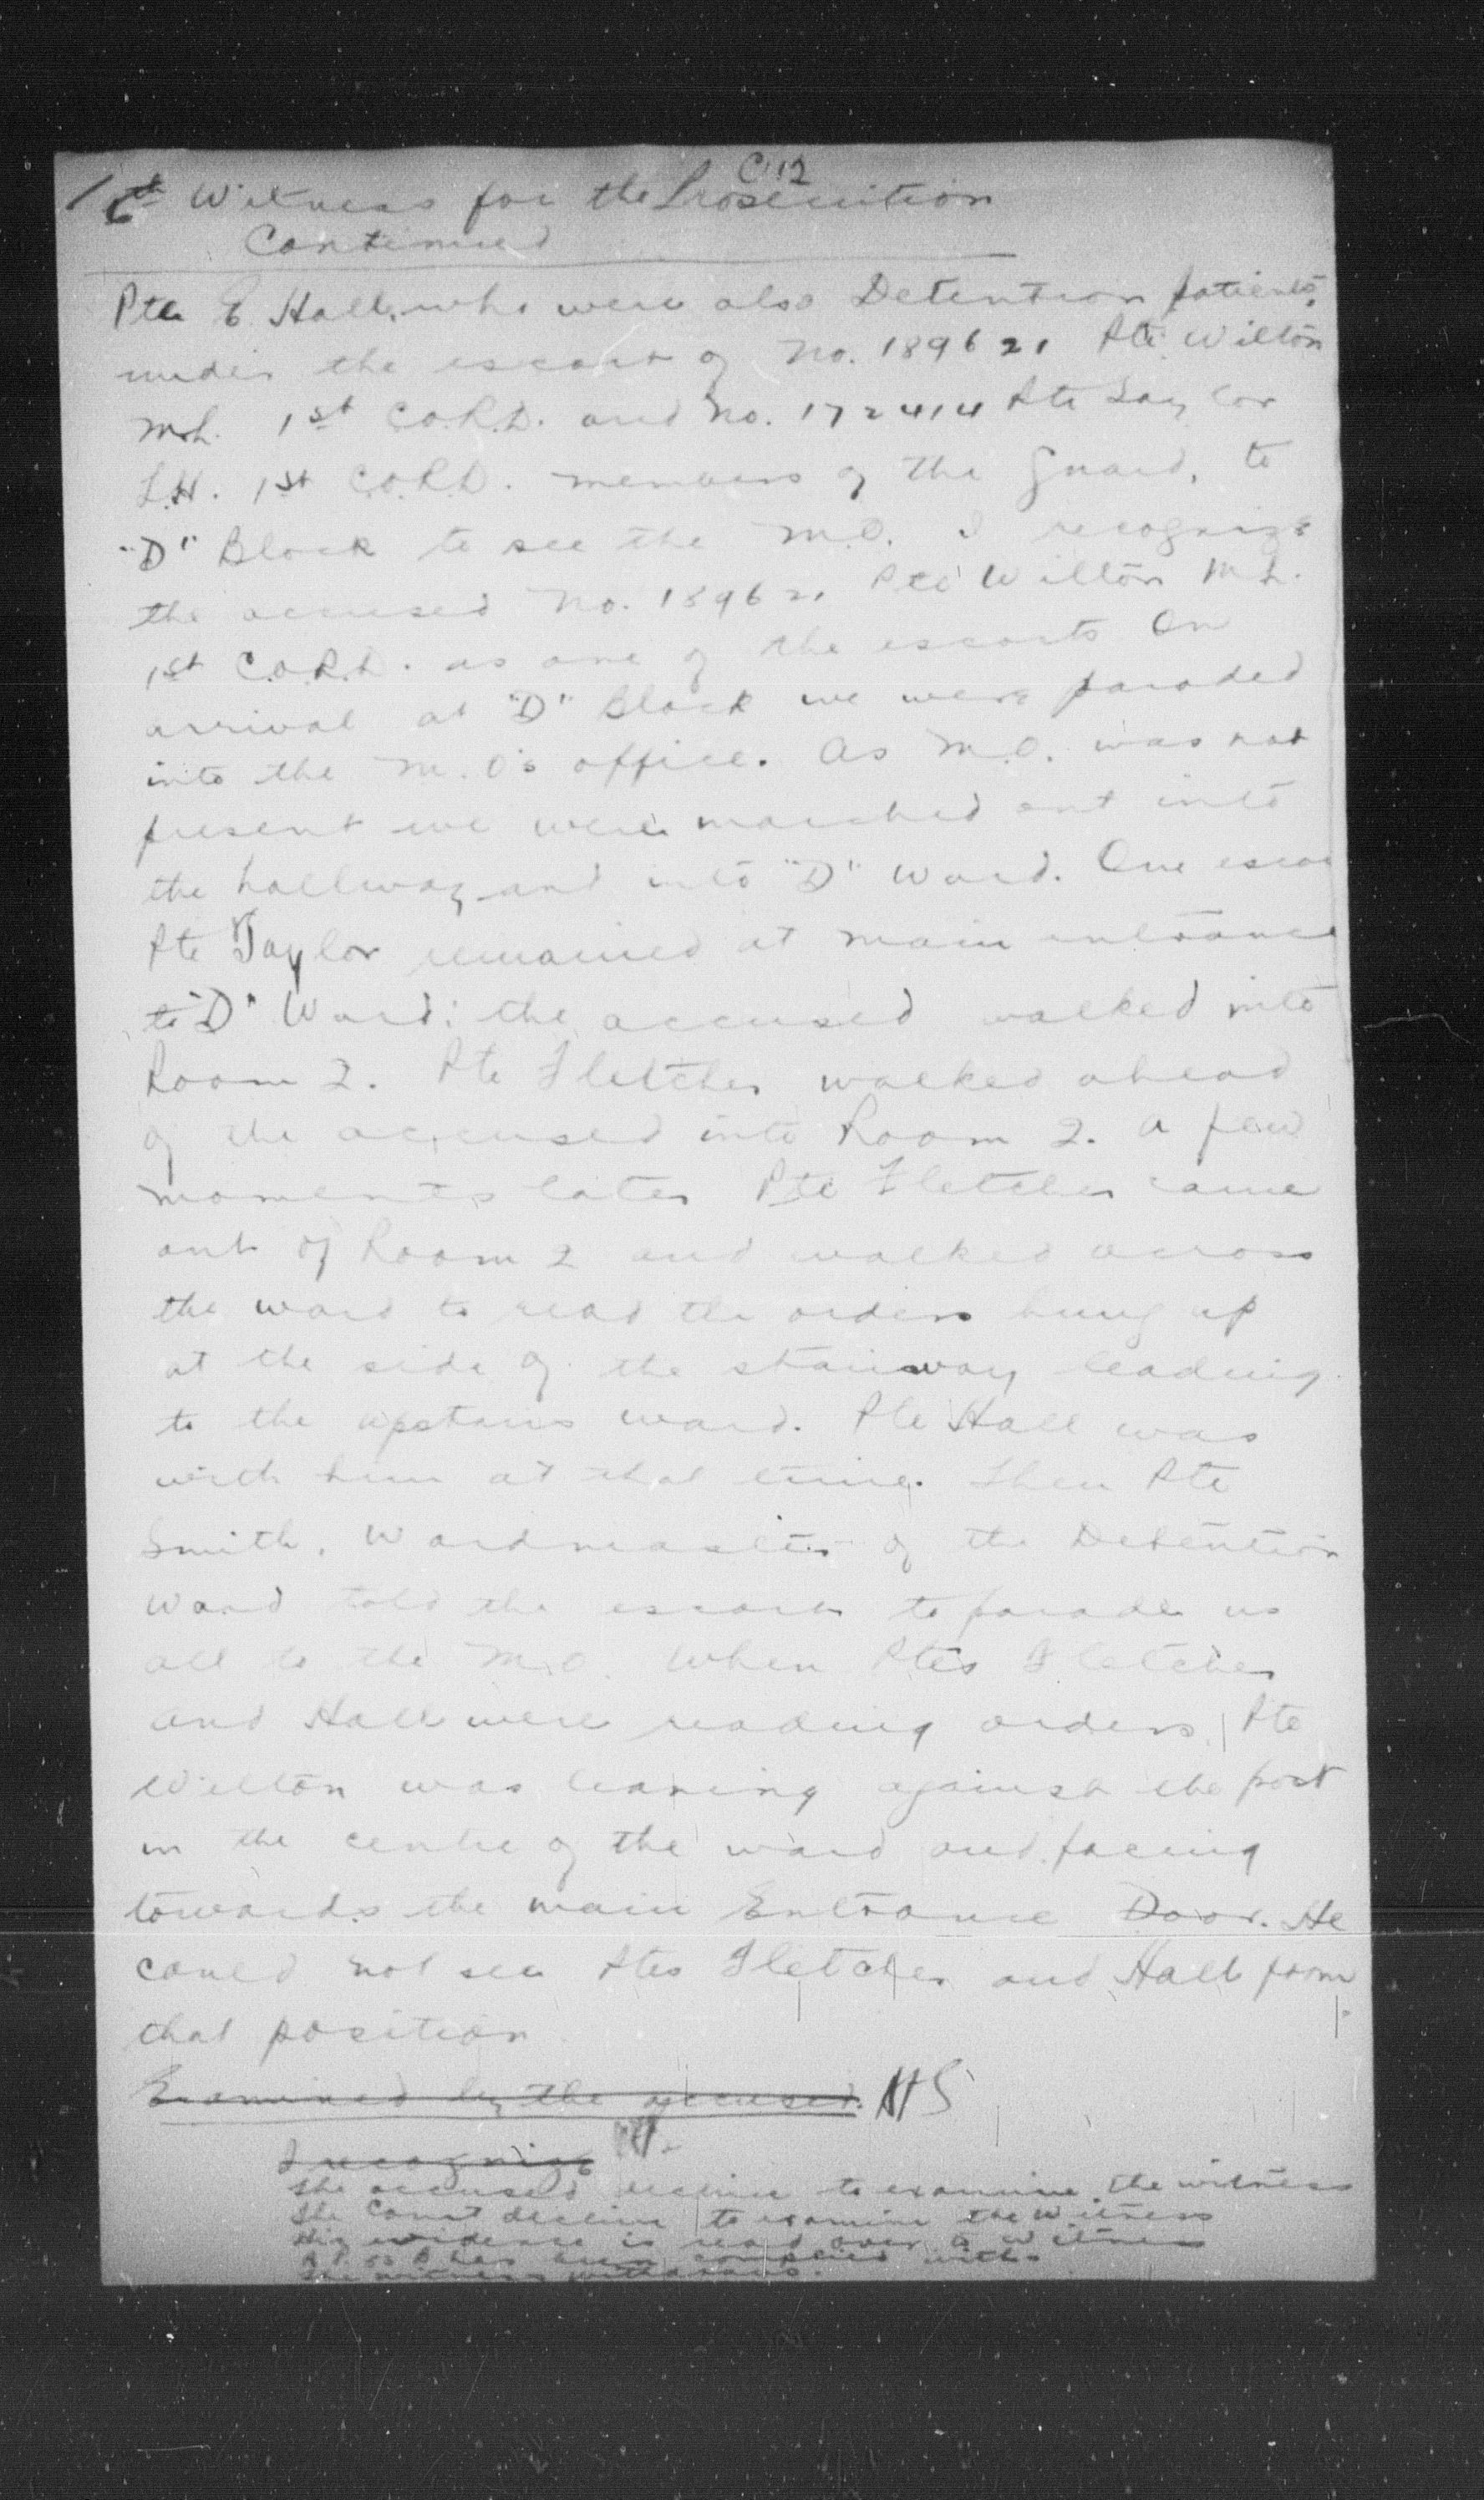 C 12
1st Witness for the Prosecution
Continued
Pte E Hall, who were also Detention patients,
under the escort of No. 189621 Pte Wilton
M.L. 1st C.O.R.D. and No. 172414 Pte Taylor
L.H. 1st C.O.R.D. members of the guard, to
"D" Block to see the M.O. I recognize
the accused No. 189621 Pte Wilton M.L.
1st C.O.R.D. as one of the escorts. On
arrival at "D" Block we were paraded
into the M.O's office. As M.O. was not
present we were marched out into
the hallway and into "D" Ward. One escor
Pte Taylor remained at main entrance
to "D" Ward: the accused walked into
Room 2. Pte Fletcher walked ahead
of the accused into Room 2. A few
moments later Pte Fletcher came
out of Room 2 and walked across
the ward to read the orders hung up
at the side of the stairway leading
to the upstairs ward. Pte Hall was
with him at that time. Then Pte
Smith, Wardmaster of the Detention
Ward told the escorts to parade us
all to the M.O. When Ptes Fletcher
and Hall were reading orders, Pte
Wilton was leaning against the post
in the centre of the ward and facing
towards the main Entrance Door. He
could not see Ptes Fletcher and Hall from
that position.
Examined by the accused. HS
I recognize
The accused decline to examine the witness
The Court decline to examine the witness
His evidence is read over to witness
has been complied with
The witness withdraws.